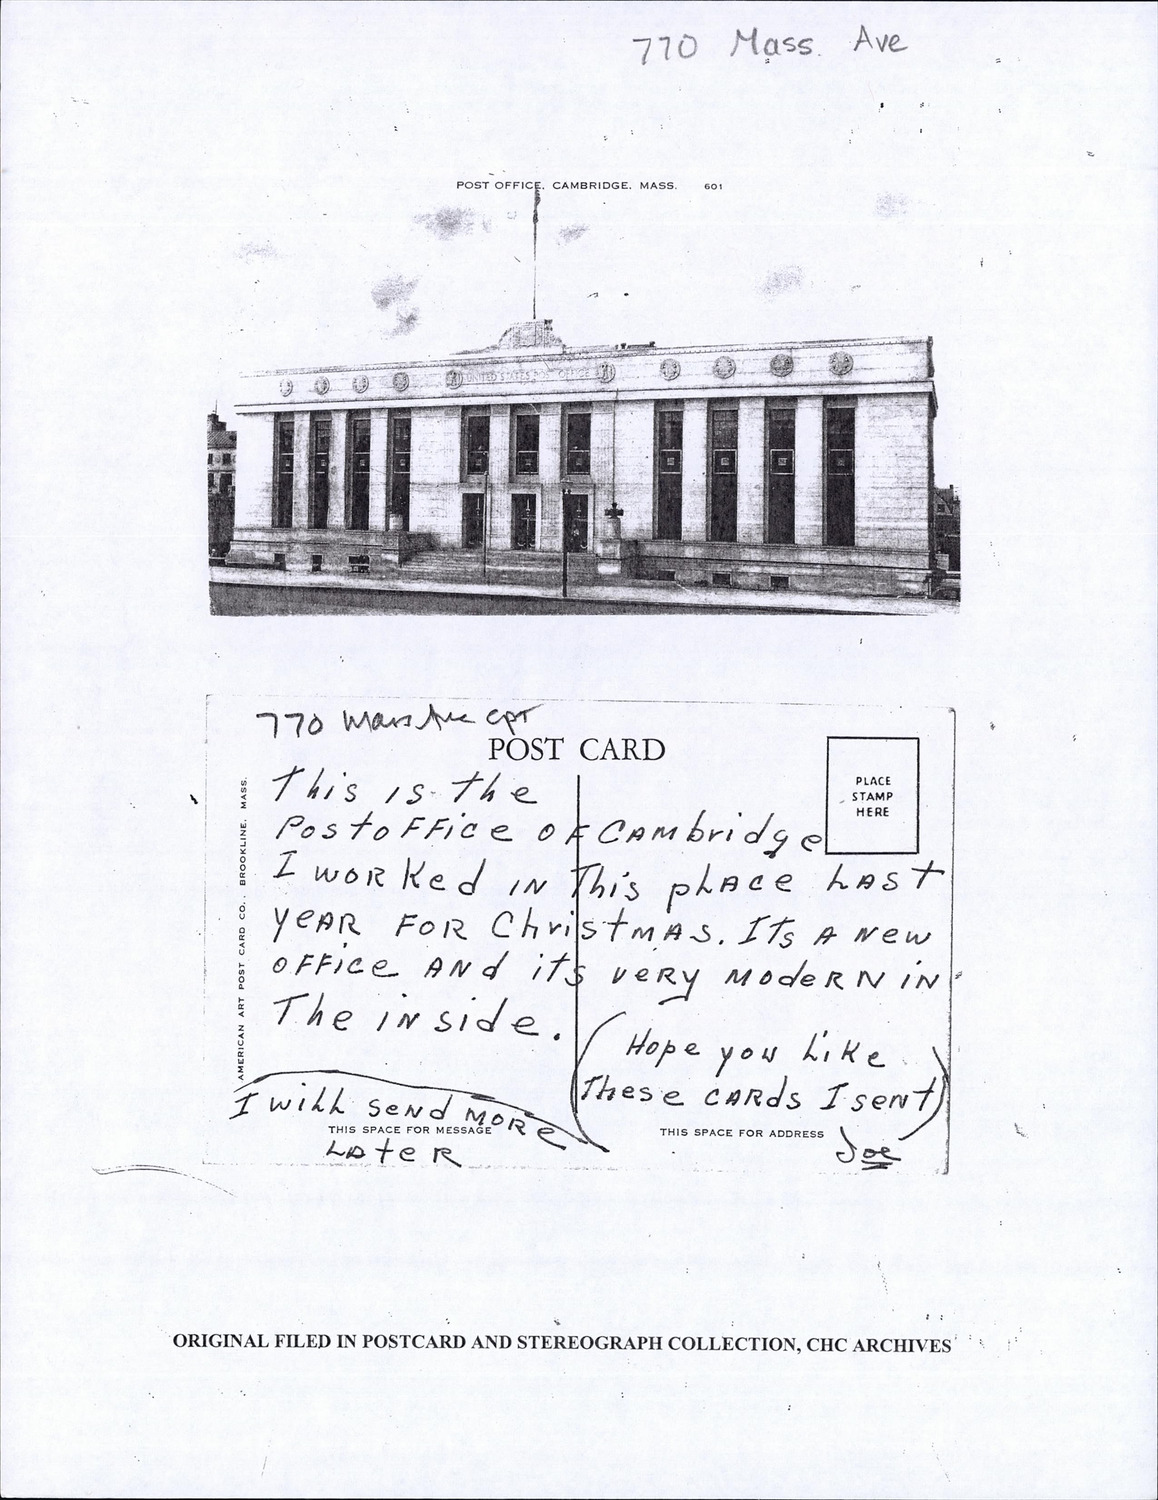 770 Mass. Ave
POST OFFICE, CAMBRIDGE, MASS. 601
UNITED STATES POST OFFICE
770 Mass Ave CPT
POST CARD
PLACE
STAMP
HERE
AMERICAN ART POST CARD CO., BROOKLINE, MASS.
This is the
PostoFFice OF CAMbridge
I worked in This plAce LAST
yeAR FOR ChristmAs. ITs A New
OFFice ANd its very ModerN iN
The inside.
(Hope you Like
These cARds I sent)
I will send MORE
LAteR
THIS SPACE FOR MESSAGE
THIS SPACE FOR ADDRESS
Joe
ORIGINAL FILED IN POSTCARD AND STEREOGRAPH COLLECTION, CHC ARCHIVES